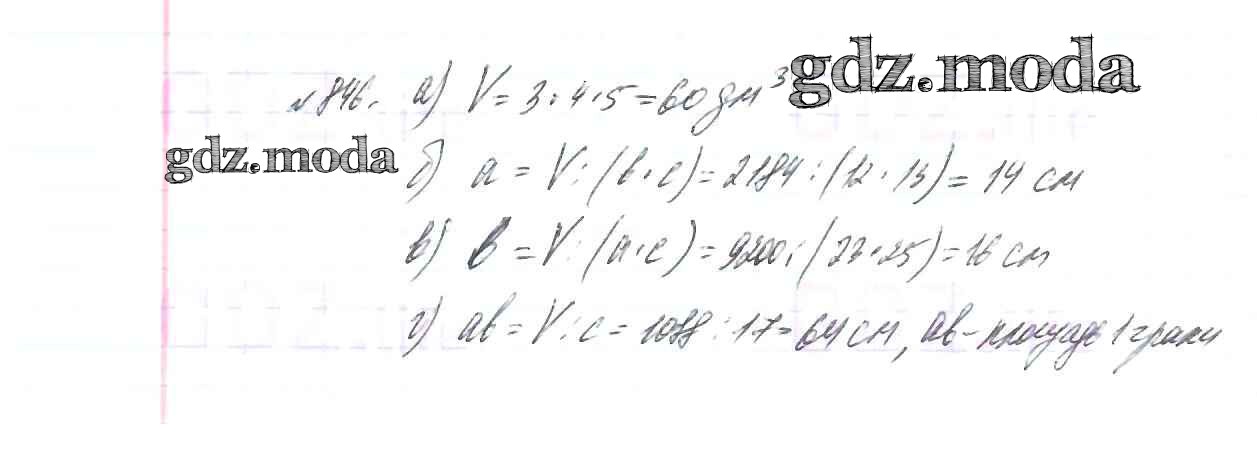 №846. а) V = 3·4·5 = 60 дм³
gdz.moda
gdz.moda
б) a = V : (b·c) = 2184 : (12·13) = 14 см
в) b = V : (a·c) = 9200 : (23·25) = 16 см
г) ab = V : c = 1088 : 17 = 64 см, ab - площадь 1 грани